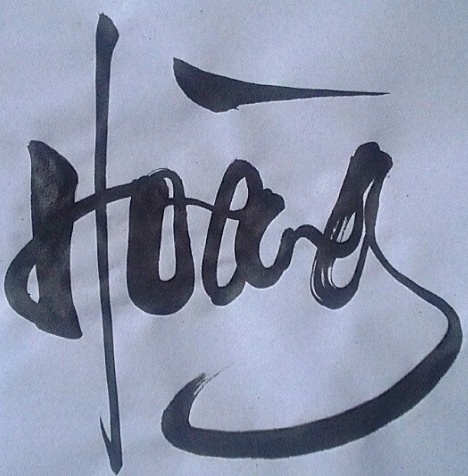 Hoàng